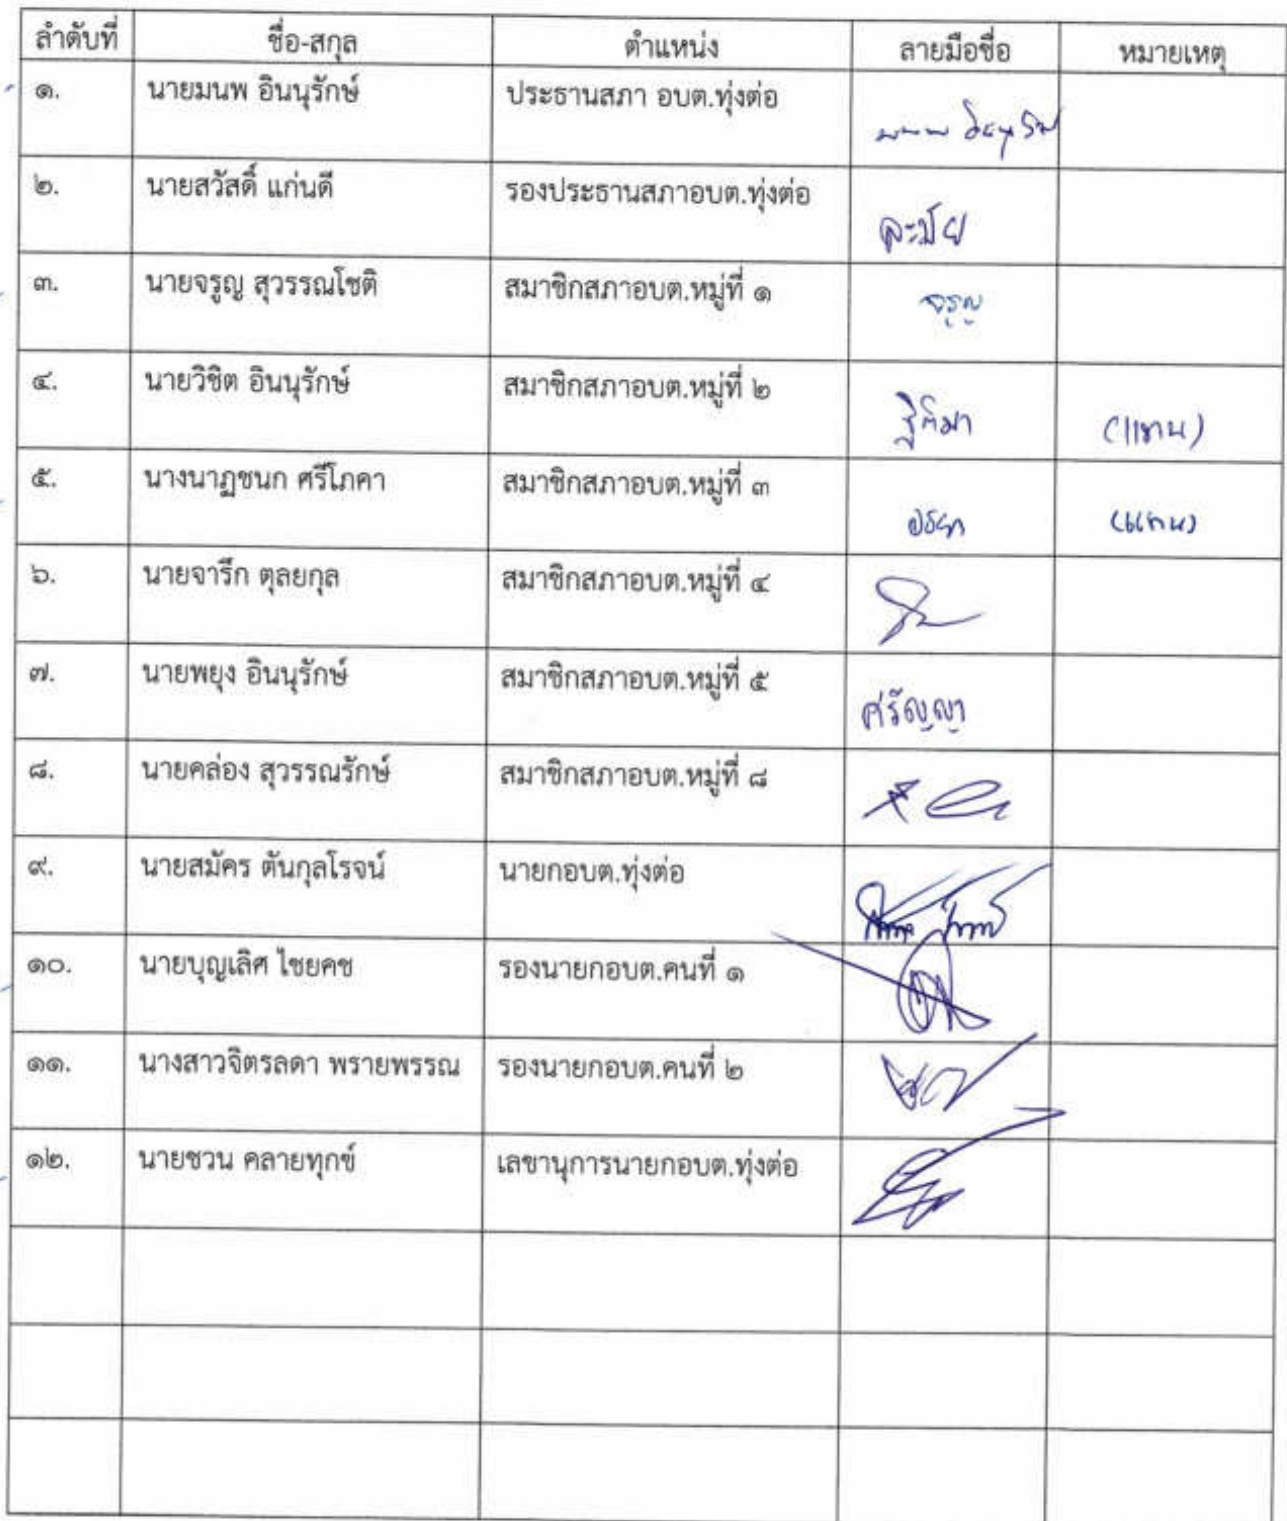 ลำดับที่ ชื่อ-สกุล ตำแหน่ง ลายมือชื่อ หมายเหตุ
๑. นายมนพ อินนุรักษ์ ประธานสภา อบต.ทุ่งต่อ
๒. นายสวัสดิ์ แก่นดี รองประธานสภาอบต.ทุ่งต่อ ละมัย
๓. นายจรูญ สุวรรณโชติ สมาชิกสภาอบต.หมู่ที่ ๑ จรูญ
๔. นายวิชิต อินนุรักษ์ สมาชิกสภาอบต.หมู่ที่ ๒ ฐิติมา (แทน)
๕. นางนาฏชนก ศรีโภคา สมาชิกสภาอบต.หมู่ที่ ๓ (แทน)
๖. นายจารึก ตุลยกุล สมาชิกสภาอบต.หมู่ที่ ๔
๗. นายพยุง อินนุรักษ์ สมาชิกสภาอบต.หมู่ที่ ๕ ศรัญญา
๘. นายคล่อง สุวรรณรักษ์ สมาชิกสภาอบต.หมู่ที่ ๘
๙. นายสมัคร ตันกุลโรจน์ นายกอบต.ทุ่งต่อ
๑๐. นายบุญเลิศ ไชยคช รองนายกอบต.คนที่ ๑
๑๑. นางสาวจิตรลดา พรายพรรณ รองนายกอบต.คนที่ ๒
๑๒. นายชวน คลายทุกข์ เลขานุการนายกอบต.ทุ่งต่อ